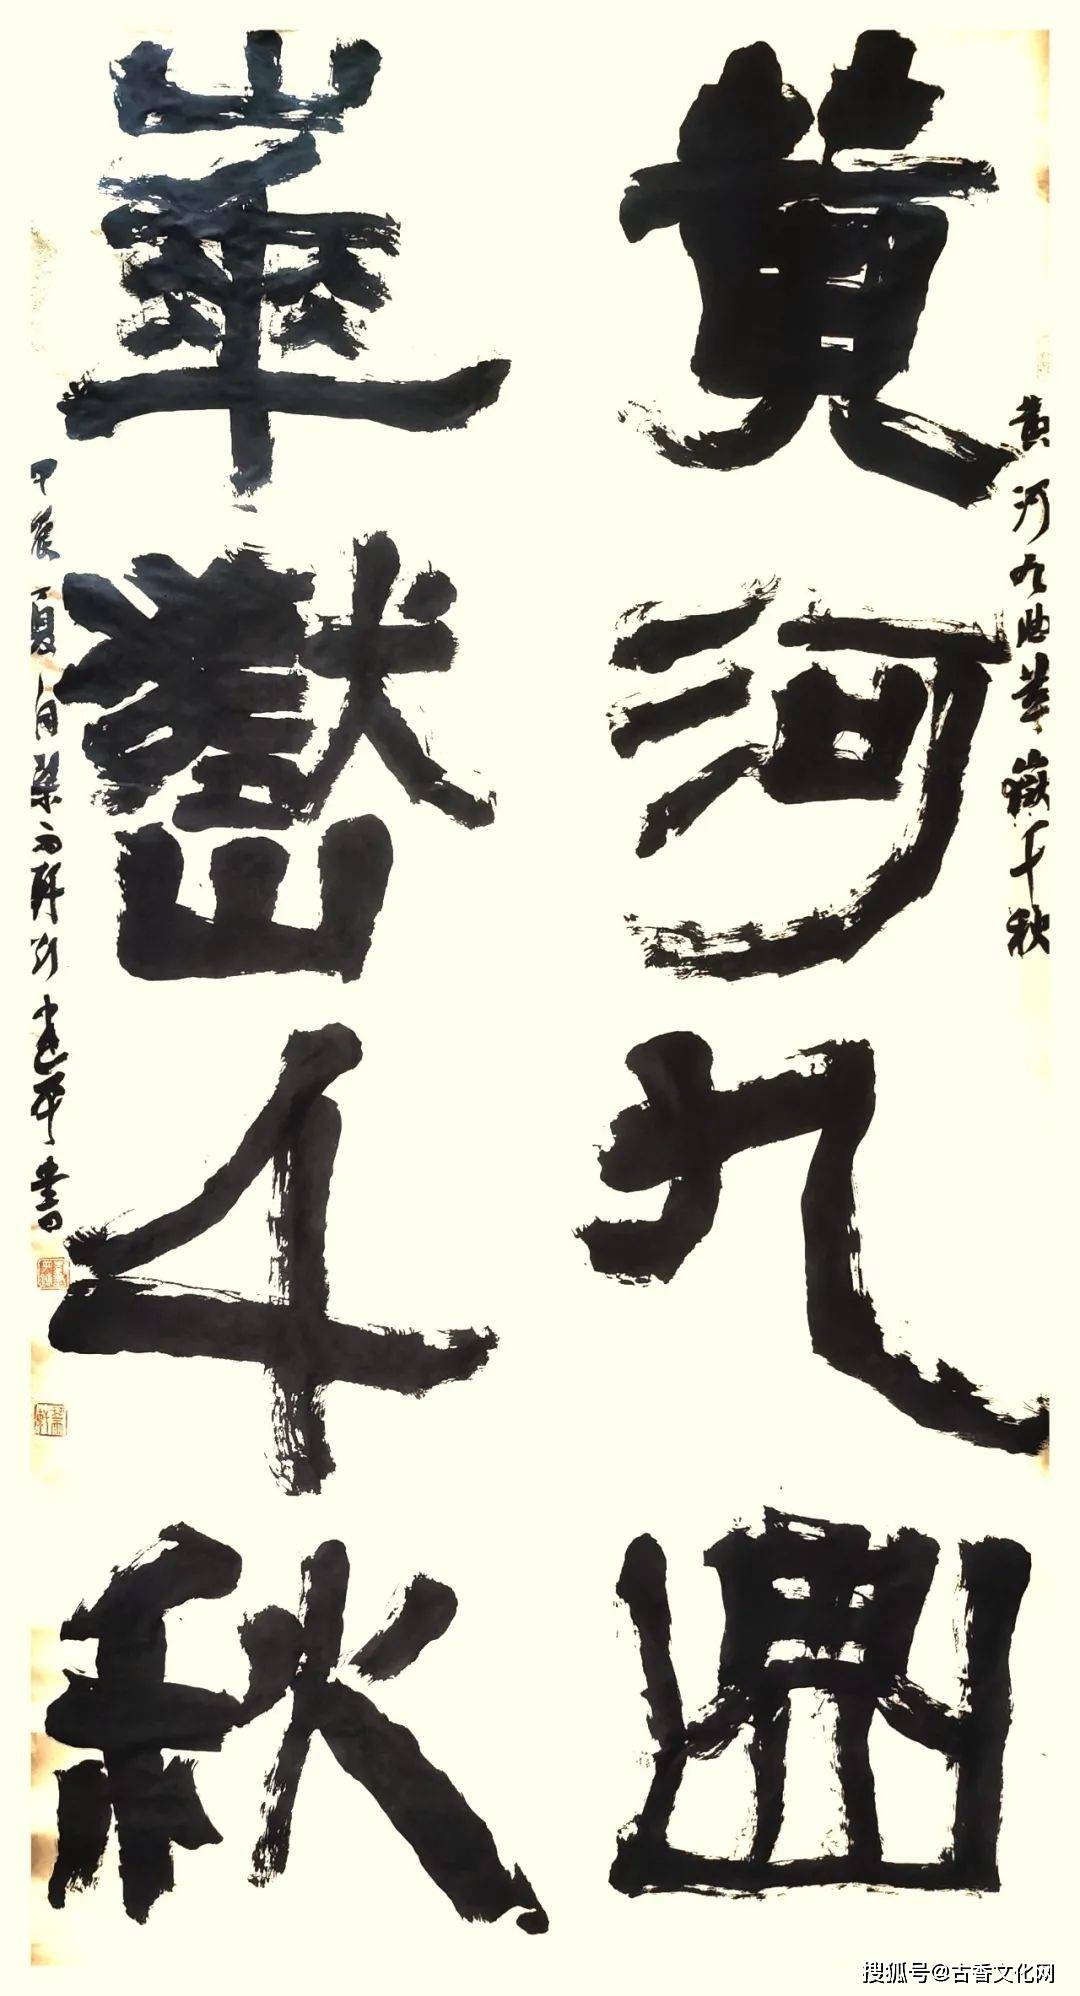 黄河九曲華嶽千秋
黄河九曲
崋嶽千秋
甲辰夏月雨軒刘建平書
搜狐号@古香文化网